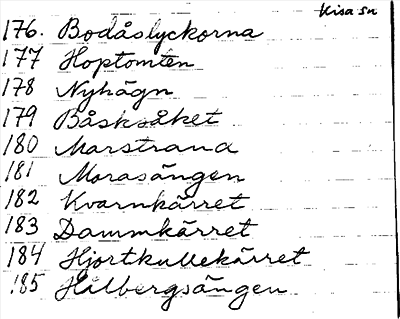 Kisa sn
176. Bodåslyckorna
177 Hoptomten
178 Nyhägn
179 Båsksåket
180 Marstrand
181 Morasängen
182 Kvarnkärret
183 Dammkärret
184 Hjortkullekärret
185 Hålbergsängen